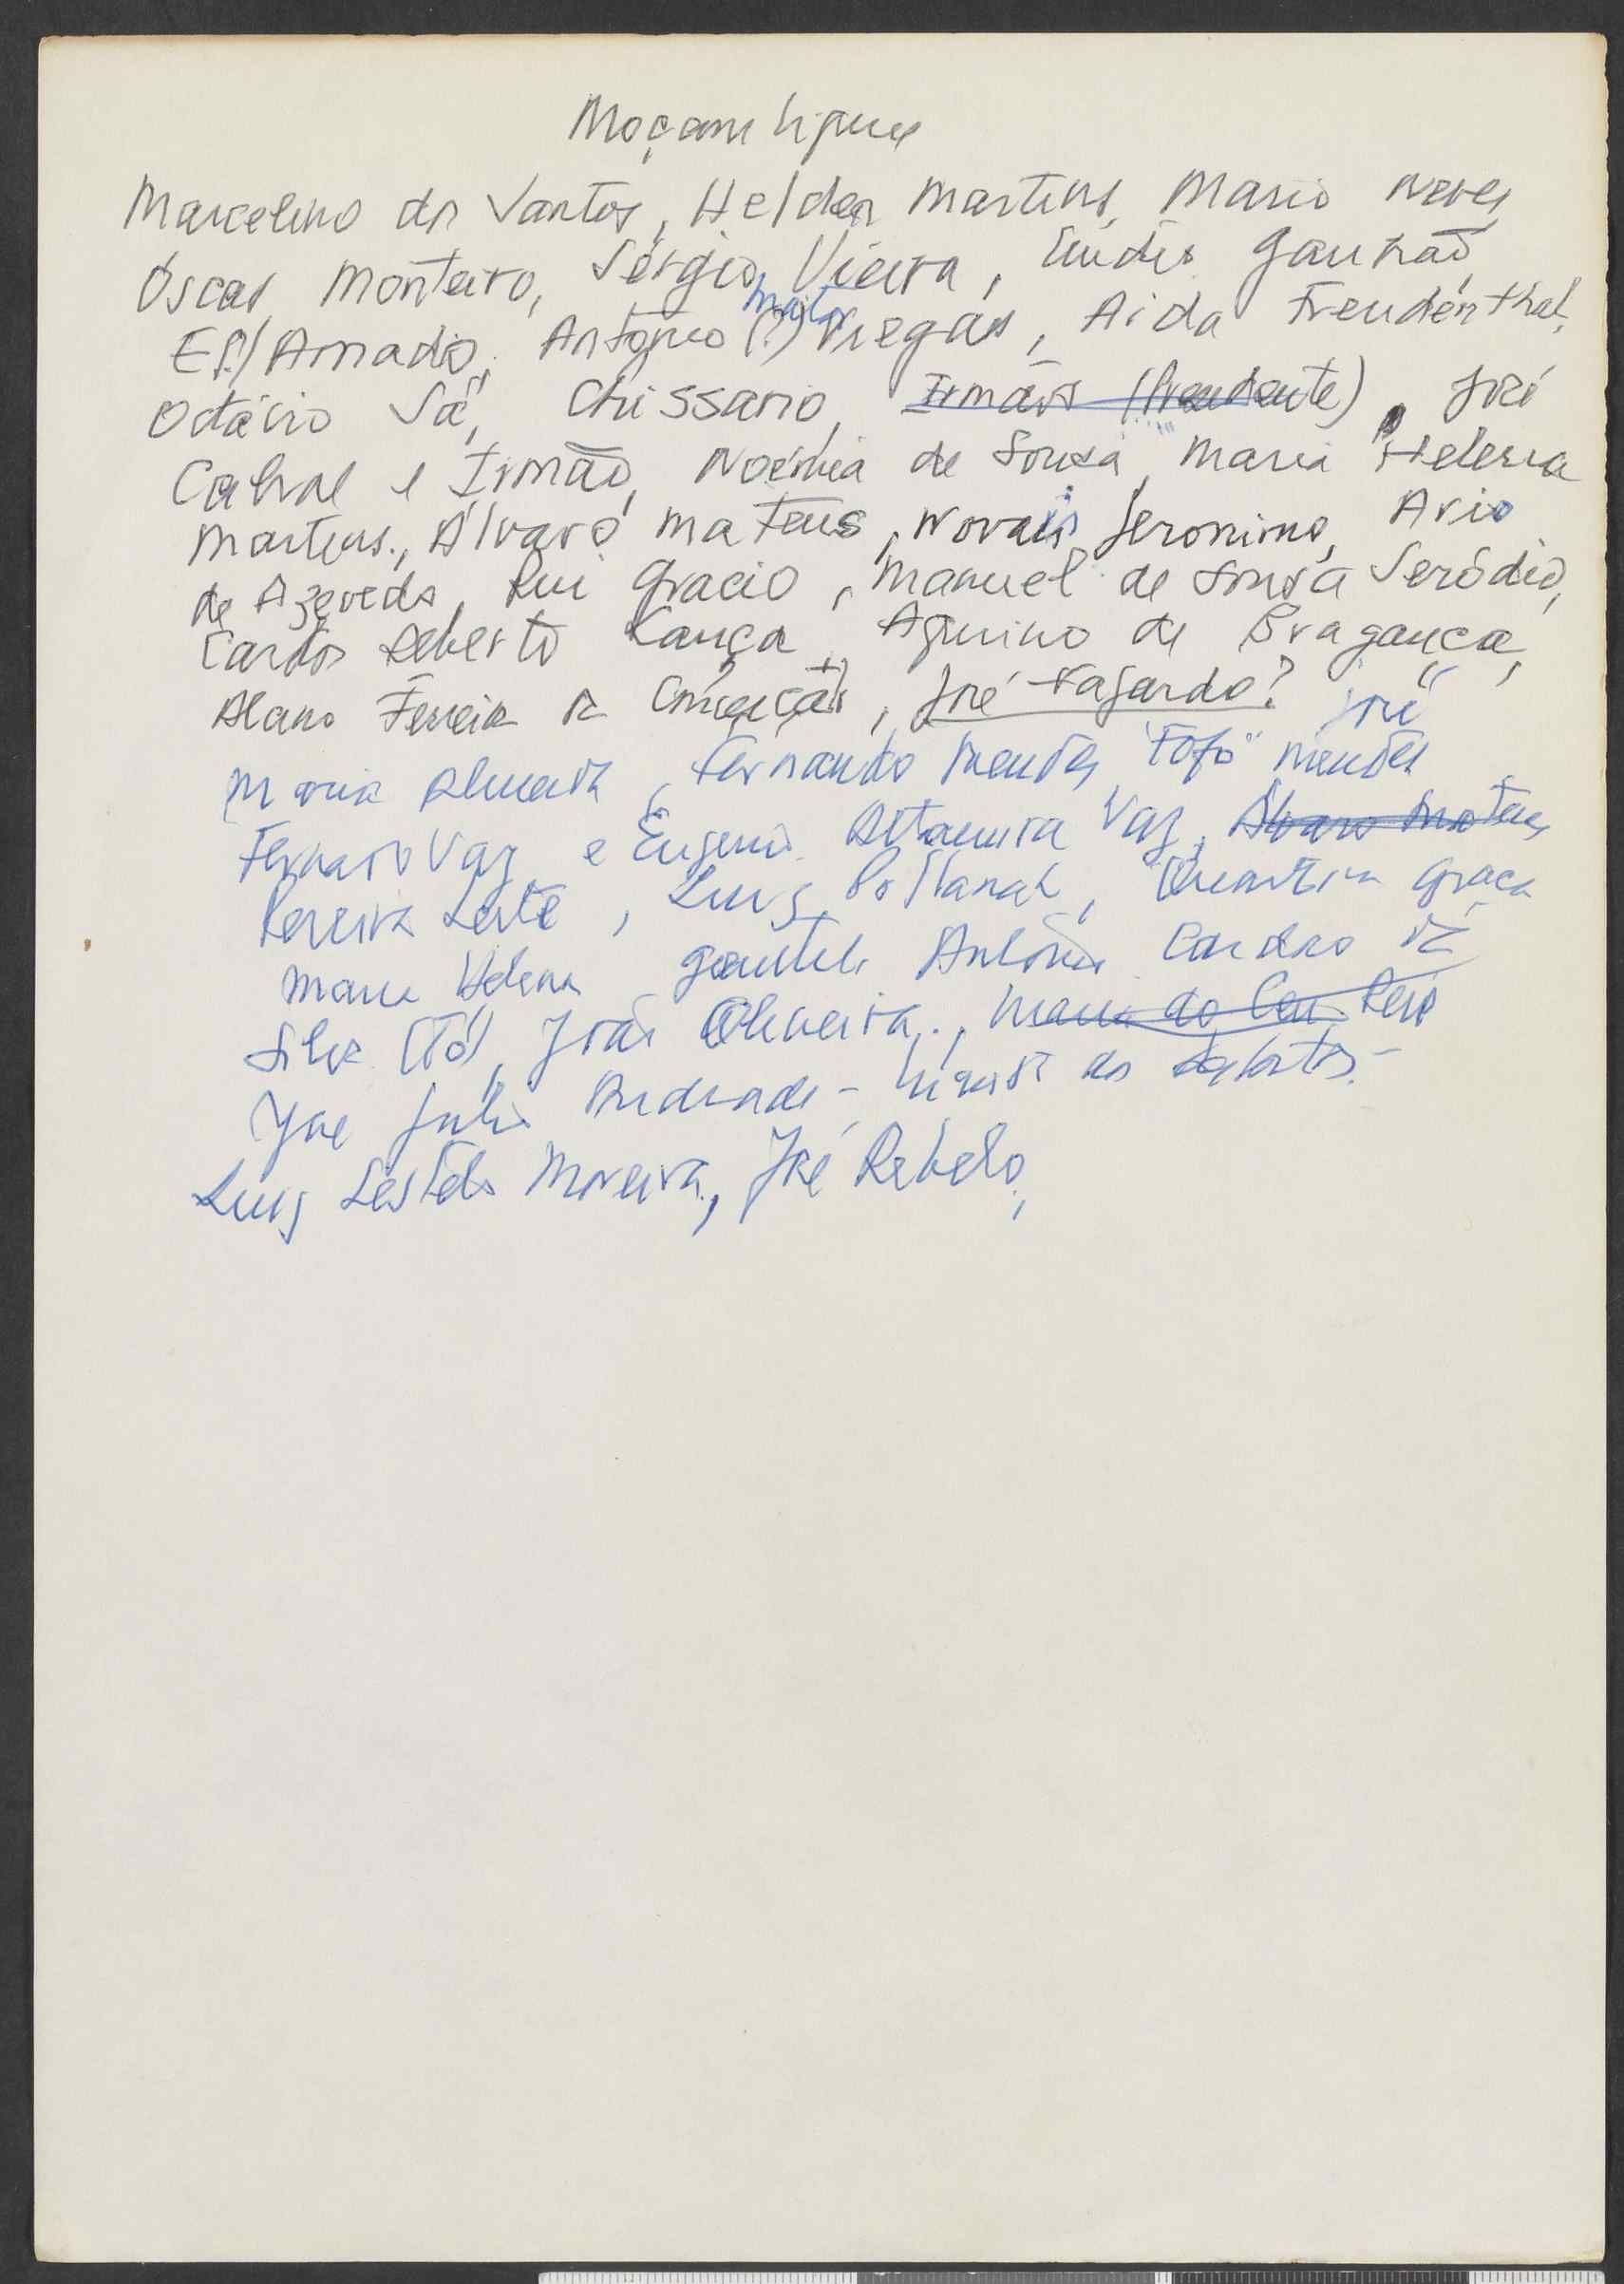 Moçambique
Marcelino dos Santos, Helder Martins, Mario Neves,
Óscar Monteiro, Sérgio Vieira, Eurídes Gaurão,
E(?) Amado, António (?) Maitor Viegas, Aida Freudenthal,
Octávio Sá, Chissano, Irmãos (Presidente), José
Cabral e Irmão, Noémia de Sousa, Maria Helena
Martins, Álvaro Mateus, Novais Jeronimo, Avio
de Azevedo, Rui Gracio, Manuel de Sousa Seródio,
Carlos Alberto Lança, Aquino de Bragança,
Alano Ferreira da Conceição, José Fajardo? José
Maria Almeida, Fernando Mendes, "Fofo" Mendes
Fernando Vaz e Eugénia Altamira Vaz, Álvaro Mateus,
Pereira Leite, Luis Polanah, Graça
Maria Helena Gentil António Cardoso da
Silva (Tó), João Oliveira, Maria do Céu Reis
José Júlio Andrade - dos
Luis Moreira, José Rebelo,